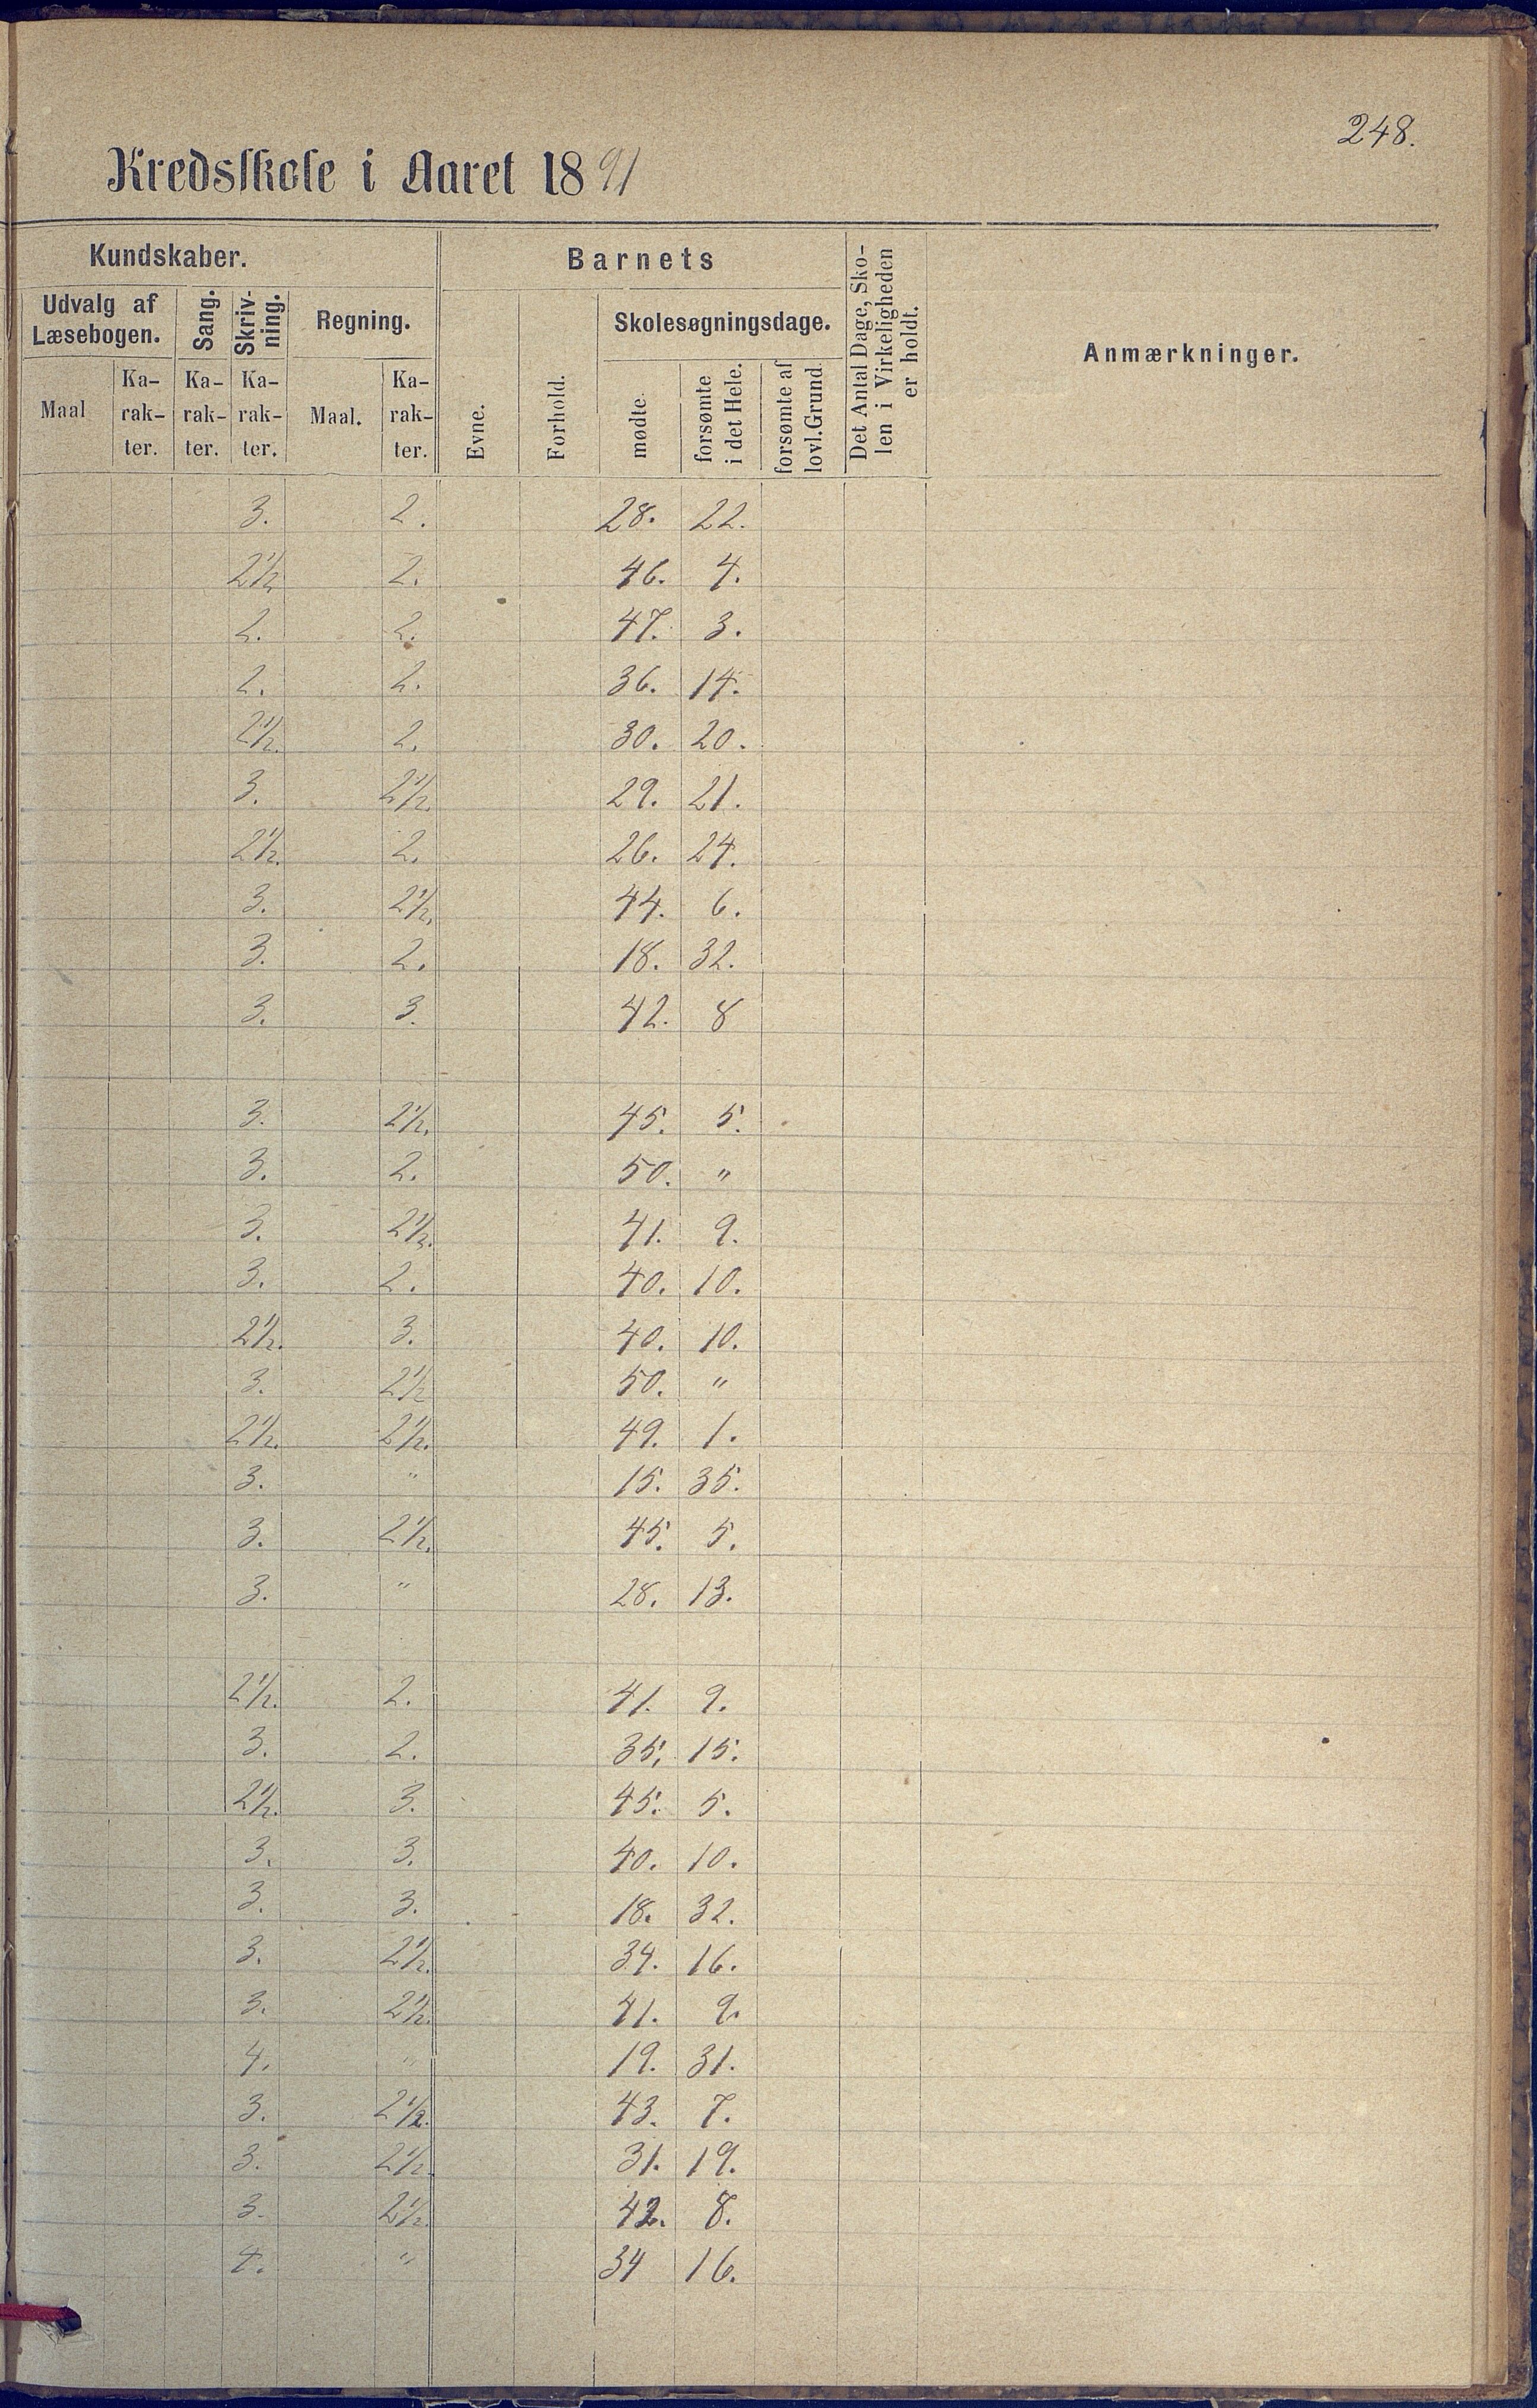 248.
Kredsskole i Aaret 1891
Kundskaber. Barnets Det Antal Dage, Sko-
len i Virkeligheden
er holdt. Anmærkninger.
Udvalg af
Læsebogen. Sang. Skriv-
ning. Regning. Evne. Forhold. Skolesøgningsdage.
Maal Ka-
rak-
ter. Ka-
rak-
ter. Ka-
rak-
ter. Maal. Ka-
rak-
ter. mødte. forsømte
i det Hele. forsømte af
lovl. Grund.
3. 2. 28. 22.
2½ 2. 46. 4.
2. 2. 47. 3.
2. 2. 36. 14.
2½. 2. 30. 20.
3. 2½. 29. 21.
2½. 2. 26. 24.
3. 2½. 44. 6.
3. 2. 18. 32.
3. 3. 42. 8
3. 2½. 45. 5.
3. 2. 50. "
3. 2½. 41. 9.
3. 2. 40. 10.
2½. 3. 40. 10.
3. 2½ 50. "
2½. 2½. 49. 1.
3. " 15. 35.
3. 2½. 45. 5.
3. " 28. 13.
2½. 2. 41. 9.
3. 2. 35. 15.
2½. 3. 45. 5.
3. 3. 40. 10.
3. 3. 18. 32.
3. 2½. 34. 16.
3. 2½. 41. 9.
4. " 19. 31.
3. 2½. 43. 7.
3. 2½. 31. 19.
3. 2½. 42. 8.
4. " 34 16.